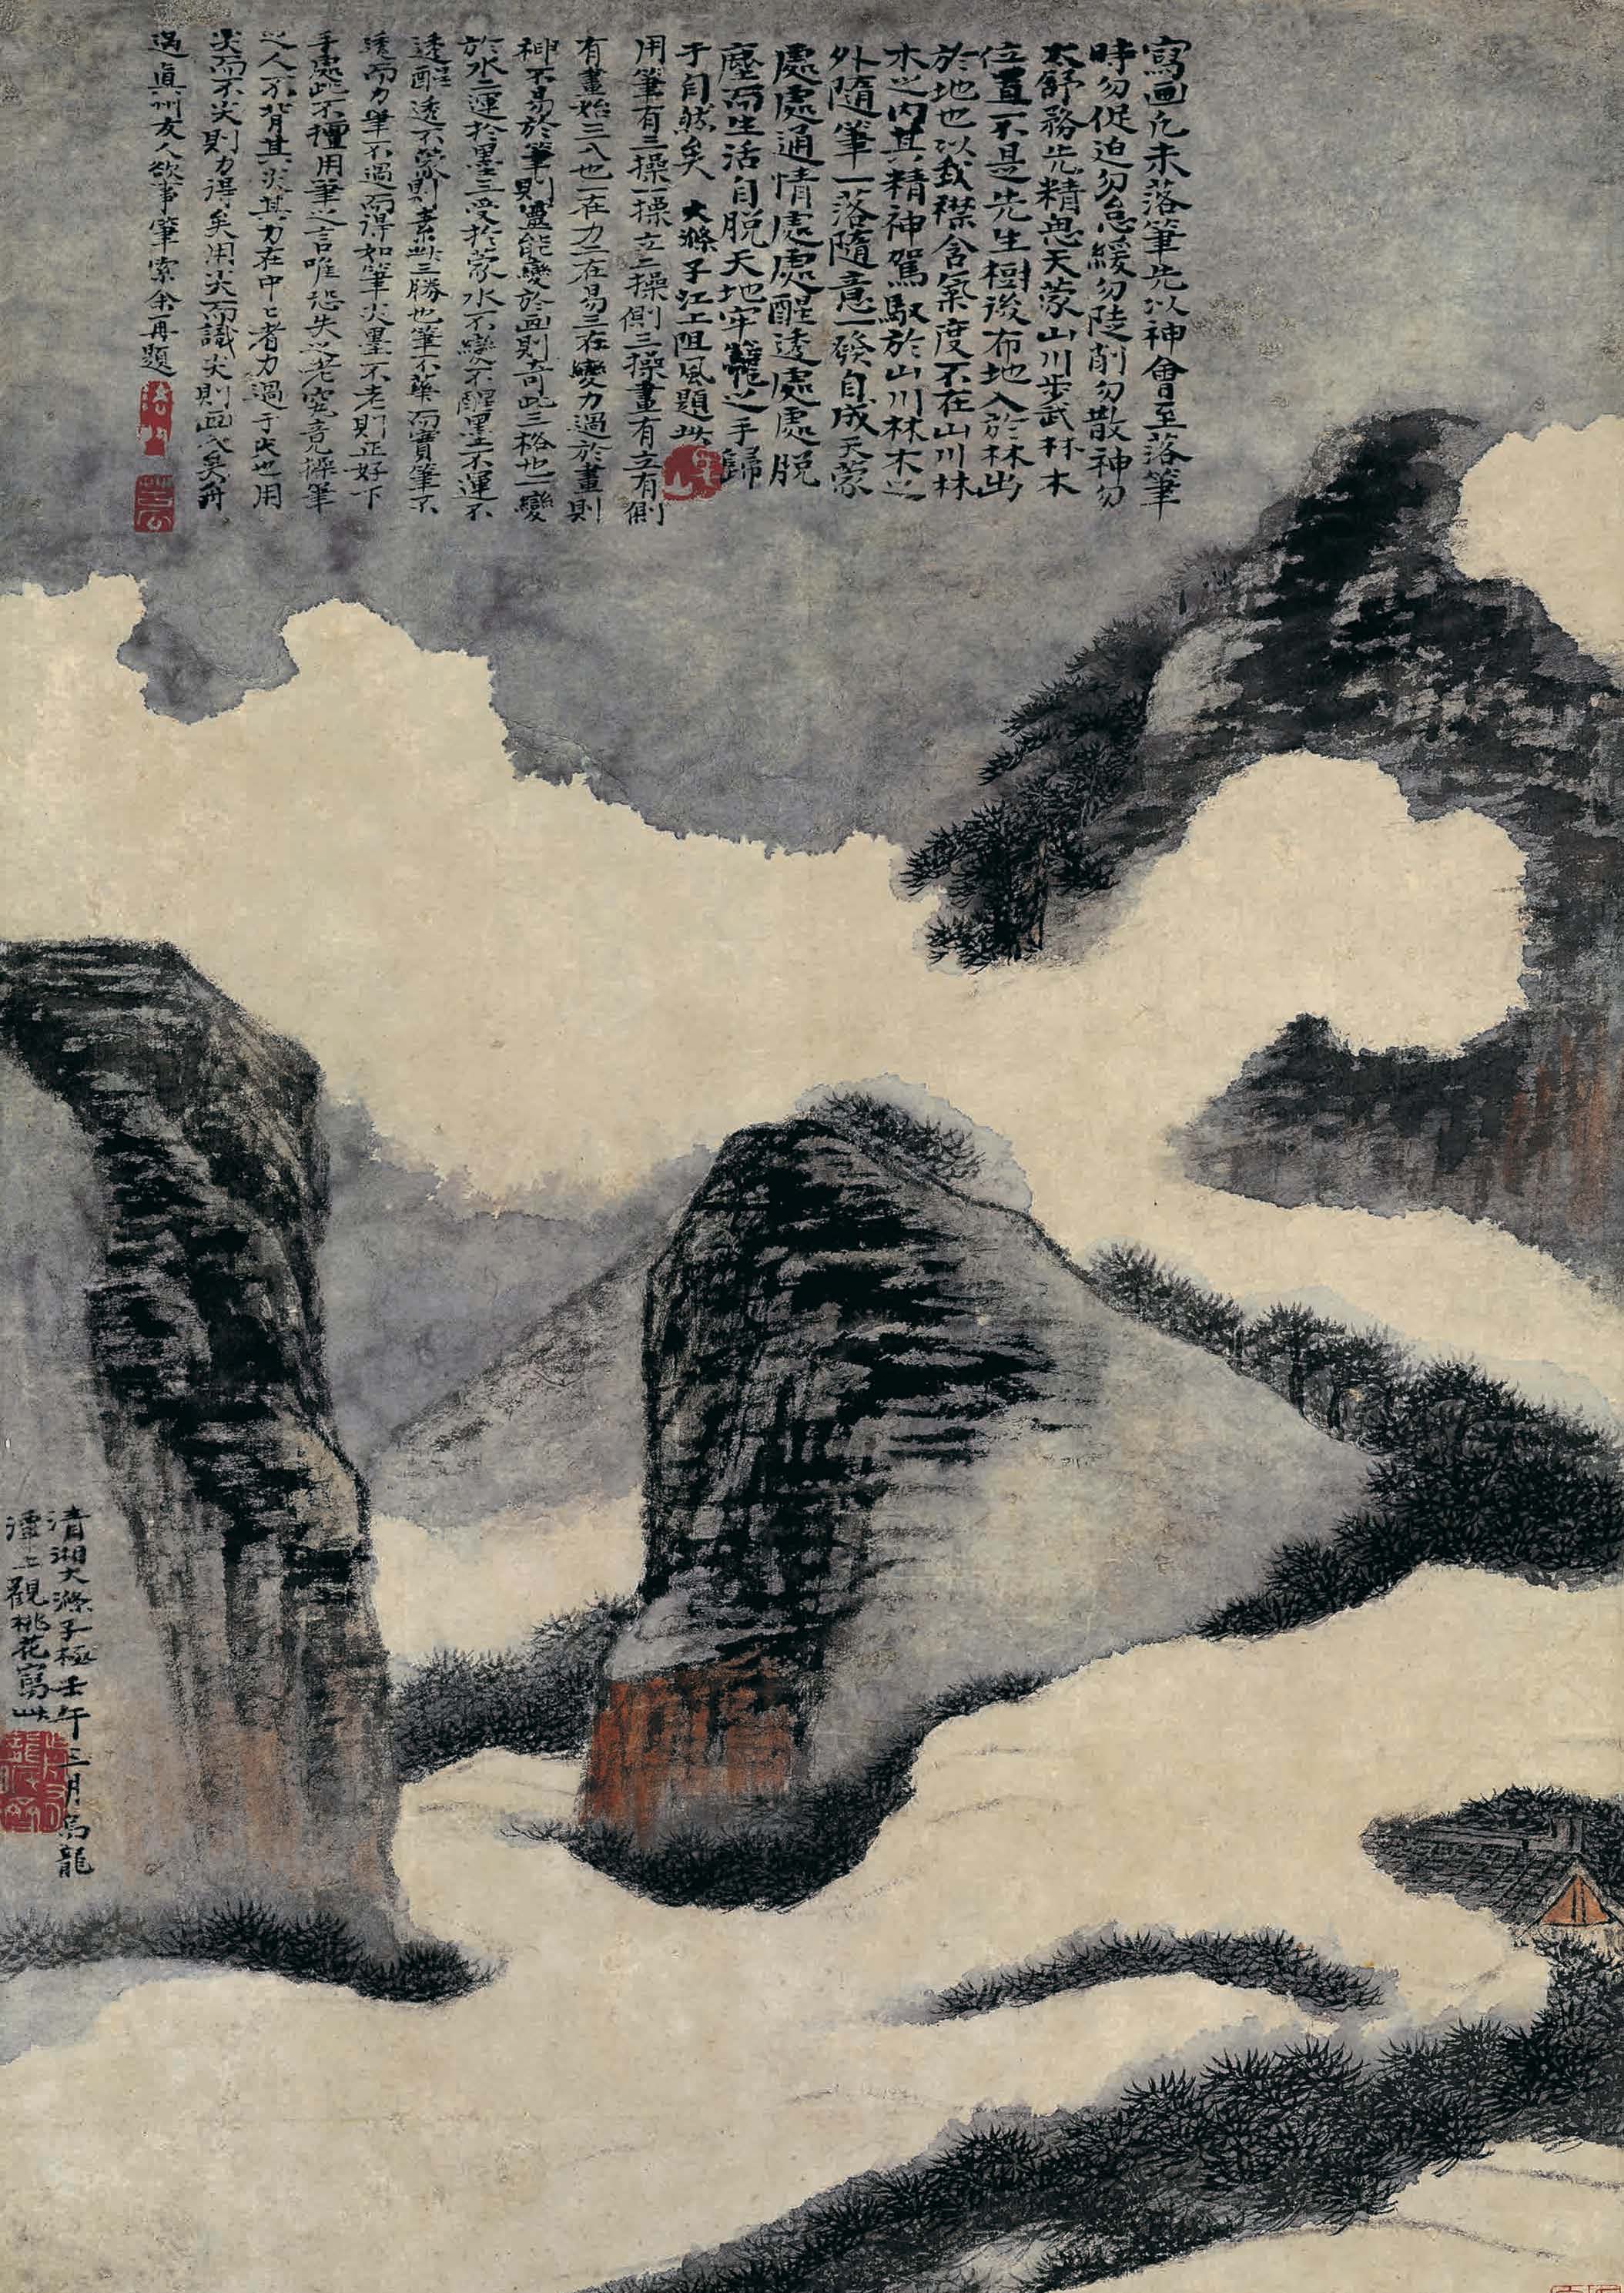 寫画凡未落筆先以神會至落筆
時勿促迫勿怠緩勿陡削勿散神勿
太舒務先精思天蒙山川步武林木
位置不是先生樹後布地入於林出
於地也以我襟含氣度不在山川林
木之内其精神駕馭於山川林木之
外隨筆一落隨意一發自成天蒙
處處通情處處醒透處處脱
塵而生活自脱天地牢籠之手歸
于自然矣 大滌子江上阻風題此
用筆有三操一操立二操側三操畫有立有側
有畫始三入也一在力二在易三在變力過於畫則
神不易於筆則靈能變於画則奇此三格也一變
於水二運於墨三受於蒙水不變不醒墨不運不
透醒透不蒙則素此三勝也筆不華而實筆不
透而力筆不過而得如筆尖墨不老則正好下
手處此不擅用筆之言唯恐失之老究竟凡擇筆
之人不背其尖其力在中中者力過于尖也用
尖而不尖則力得矣用尖而識尖則画入矣再
過真州友人欲事筆索余再題
清湘大滌子極壬午三月烏龍
潭上觀桃花寫此